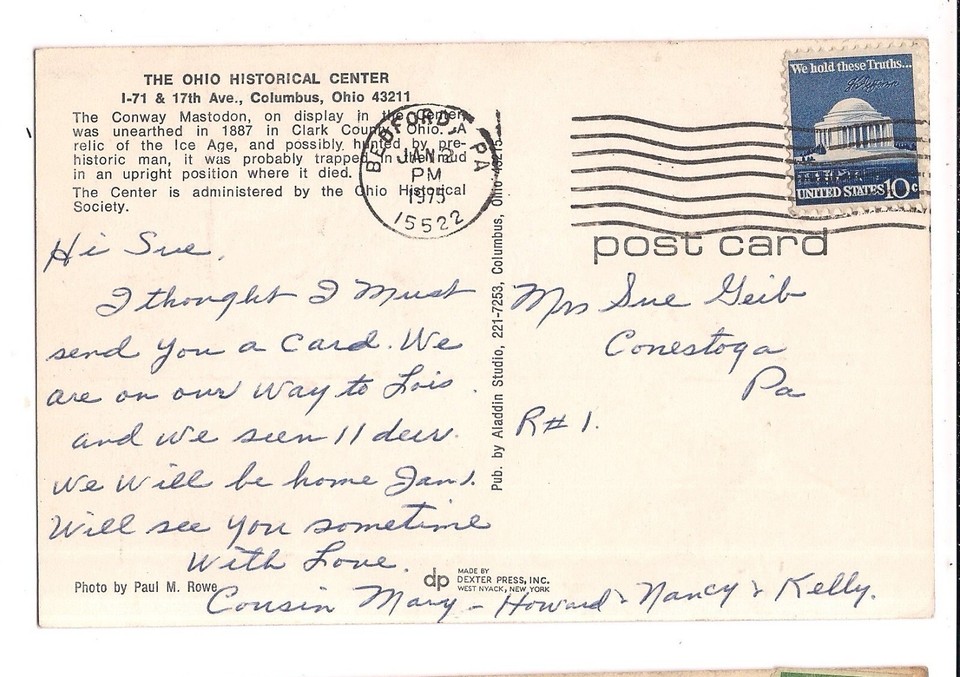 THE OHIO HISTORICAL CENTER
I-71 & 17th Ave., Columbus, Ohio 43211
The Conway Mastodon, on display in the Center,
was unearthed in 1887 in Clark County, Ohio. A
relic of the Ice Age, and possibly hunted by pre-
historic man, it was probably trapped in the mud
in an upright position where it died.
The Center is administered by the Ohio Historical
Society.
BEDFORD, PA
JAN 2
PM
1975
15522
We hold these Truths...
UNITED STATES 10c
post card
Hi Sue,
I thought I Must
send You a Card. We
are on our Way to Lois.
and We seen 11 deer.
We Will be home Jan 1.
Will see You sometime
With Love.
Cousin Mary - Howard & Nancy & Kelly.
Pub. by Aladdin Studio, 221-7253, Columbus, Ohio 43215
Mrs Sue Geib
Conestoga
Pa
R# 1.
Photo by Paul M. Rowe
dp
MADE BY
DEXTER PRESS, INC.
WEST NYACK, NEW YORK